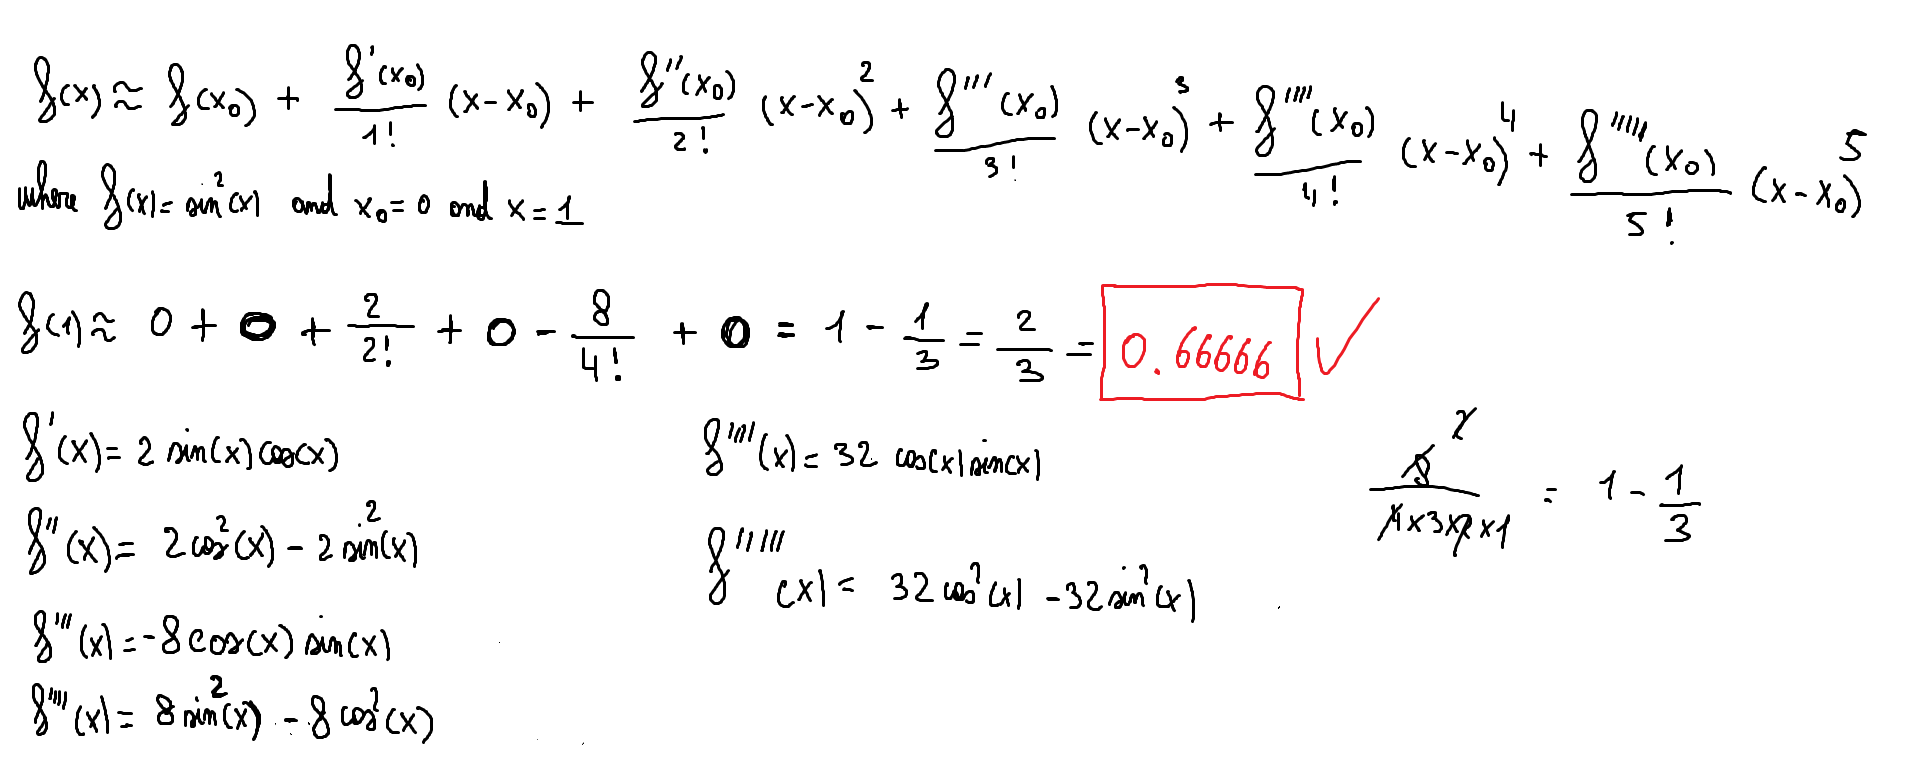 f(x) ≈ f(x₀) + f'(x₀)/1! (x-x₀) + f''(x₀)/2! (x-x₀)² + f'''(x₀)/3! (x-x₀)³ + f''''(x₀)/4! (x-x₀)⁴ + f'''''(x₀)/5! (x-x₀)⁵
where f(x)= sin²(x) and x₀=0 and x=1
f(1) ≈ 0 + 0 + 2/2! + 0 - 8/4! + 0 = 1 - 1/3 = 2/3 = 0.66666 ✓
f'(x)= 2 sin(x) cos(x)
f''(x)= 2cos²(x) - 2 sin²(x)
f'''(x)= -8cos(x) sin(x)
f''''(x)= 8 sin²(x) - 8 cos²(x)
f'''''(x)= 32 cos(x) sin(x)
f''''''(x)= 32 cos²(x) - 32 sin²(x)
2
8/4x3x2x1 = 1 - 1/3